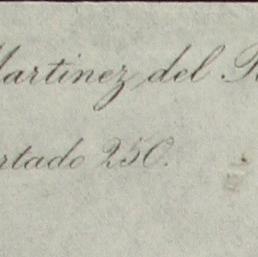 Martinez del
artado 250.